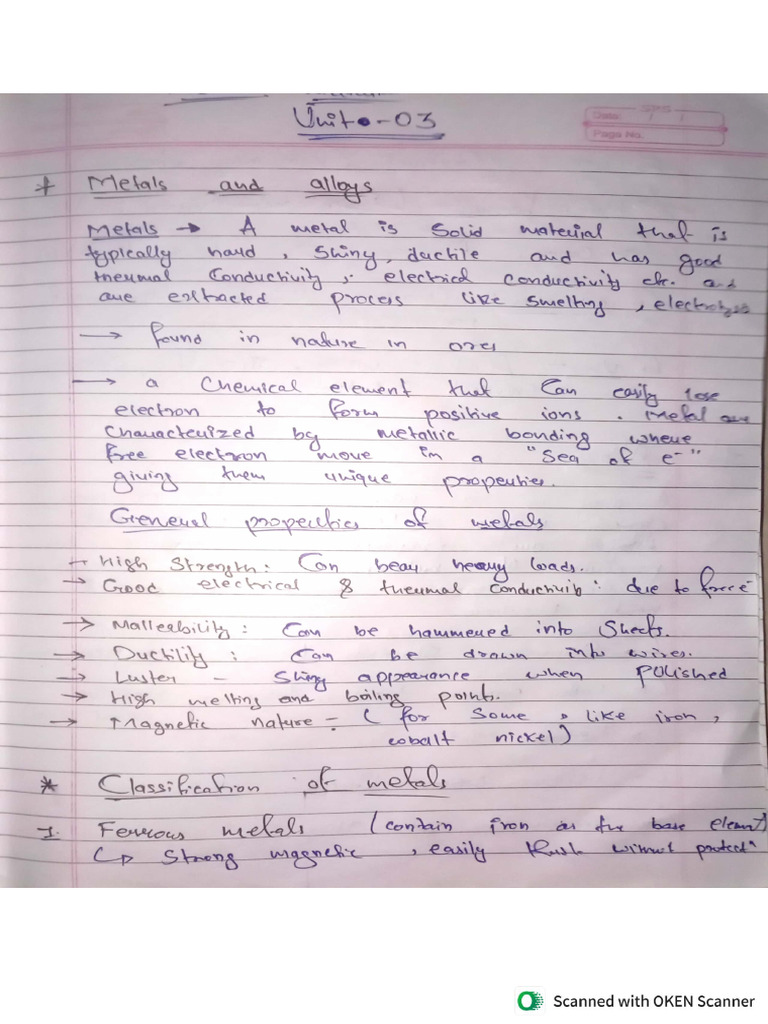 Unit-03
Date: / /
Page No.
* Metals and alloys
Metals → A metal is solid material that is
typically hard, shiny, ductile and has good
thermal conductivity, electrical conductivity etc. and
are extracted process like smelting, electrolysis
→ found in nature in ores
→ a chemical element that can easily lose
electron to form positive ions. Metal are
characterized by metallic bonding where
free electron move in a "Sea of e⁻"
giving them unique properties.
General properties of metals
→ High Strength: Can bear heavy loads.
→ Good electrical & thermal conductivity: due to free e⁻
→ Malleability: Can be hammered into Sheets.
→ Ductility: Can be drawn into wires.
→ Luster - Shiny appearance when polished
→ High melting and boiling points.
→ Magnetic nature - (for some, like iron,
cobalt nickel)
* Classification of metals
1. Ferrous metals (contain iron as the base element)
↳ Strong magnetic, easily Rush without protectⁿ
Scanned with OKEN Scanner